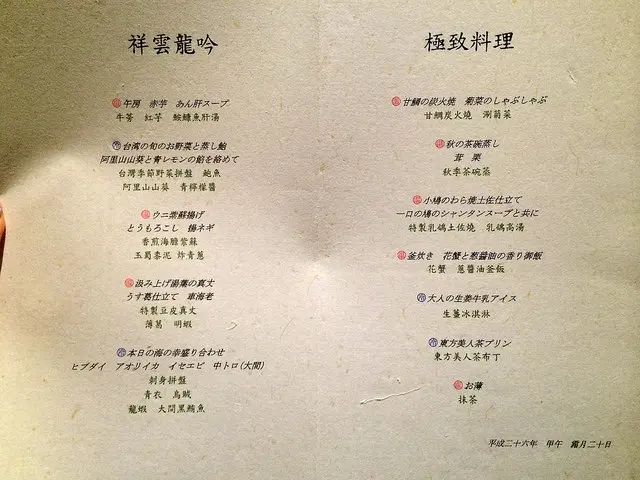 祥雲龍吟
午房　赤芋　あん肝スープ
牛蒡　紅芋　鮟鱇魚肝湯
台湾の旬のお野菜と蒸し鮑
阿里山山葵と青レモンの餡を絡めて
台灣季節野菜拼盤　鮑魚
阿里山山葵　青檸檬醬
ウニ紫蘇揚げ
とうもろこし　揚ネギ
香煎海膽紫蘇
玉蜀黍泥　炸青蔥
汲み上げ湯葉の真丈
うす葛仕立て　車海老
特製豆皮真丈
薄葛　明蝦
本日の海の幸盛り合わせ
ヒブダイ　アオリイカ　イセエビ　中トロ(大間)
刺身拼盤
青衣　烏賊
龍蝦　大間黑鮪魚
極致料理
甘鯛の炭火焼　菊菜のしゃぶしゃぶ
甘鯛炭火燒　涮茼菜
秋の茶碗蒸し
茸　栗
秋季茶碗蒸
小鳩のわら焼土佐仕立て
一口の鳩のシャンタンスープと共に
特製乳鴿土佐燒　乳鴿高湯
釜炊き　花蟹と葱醤油の香り御飯
花蟹　蔥醬油釜飯
大人の生姜牛乳アイス
生薑冰淇淋
東方美人茶プリン
東方美人茶布丁
お薄
抹茶
平成二十六年　甲午　霜月二十日